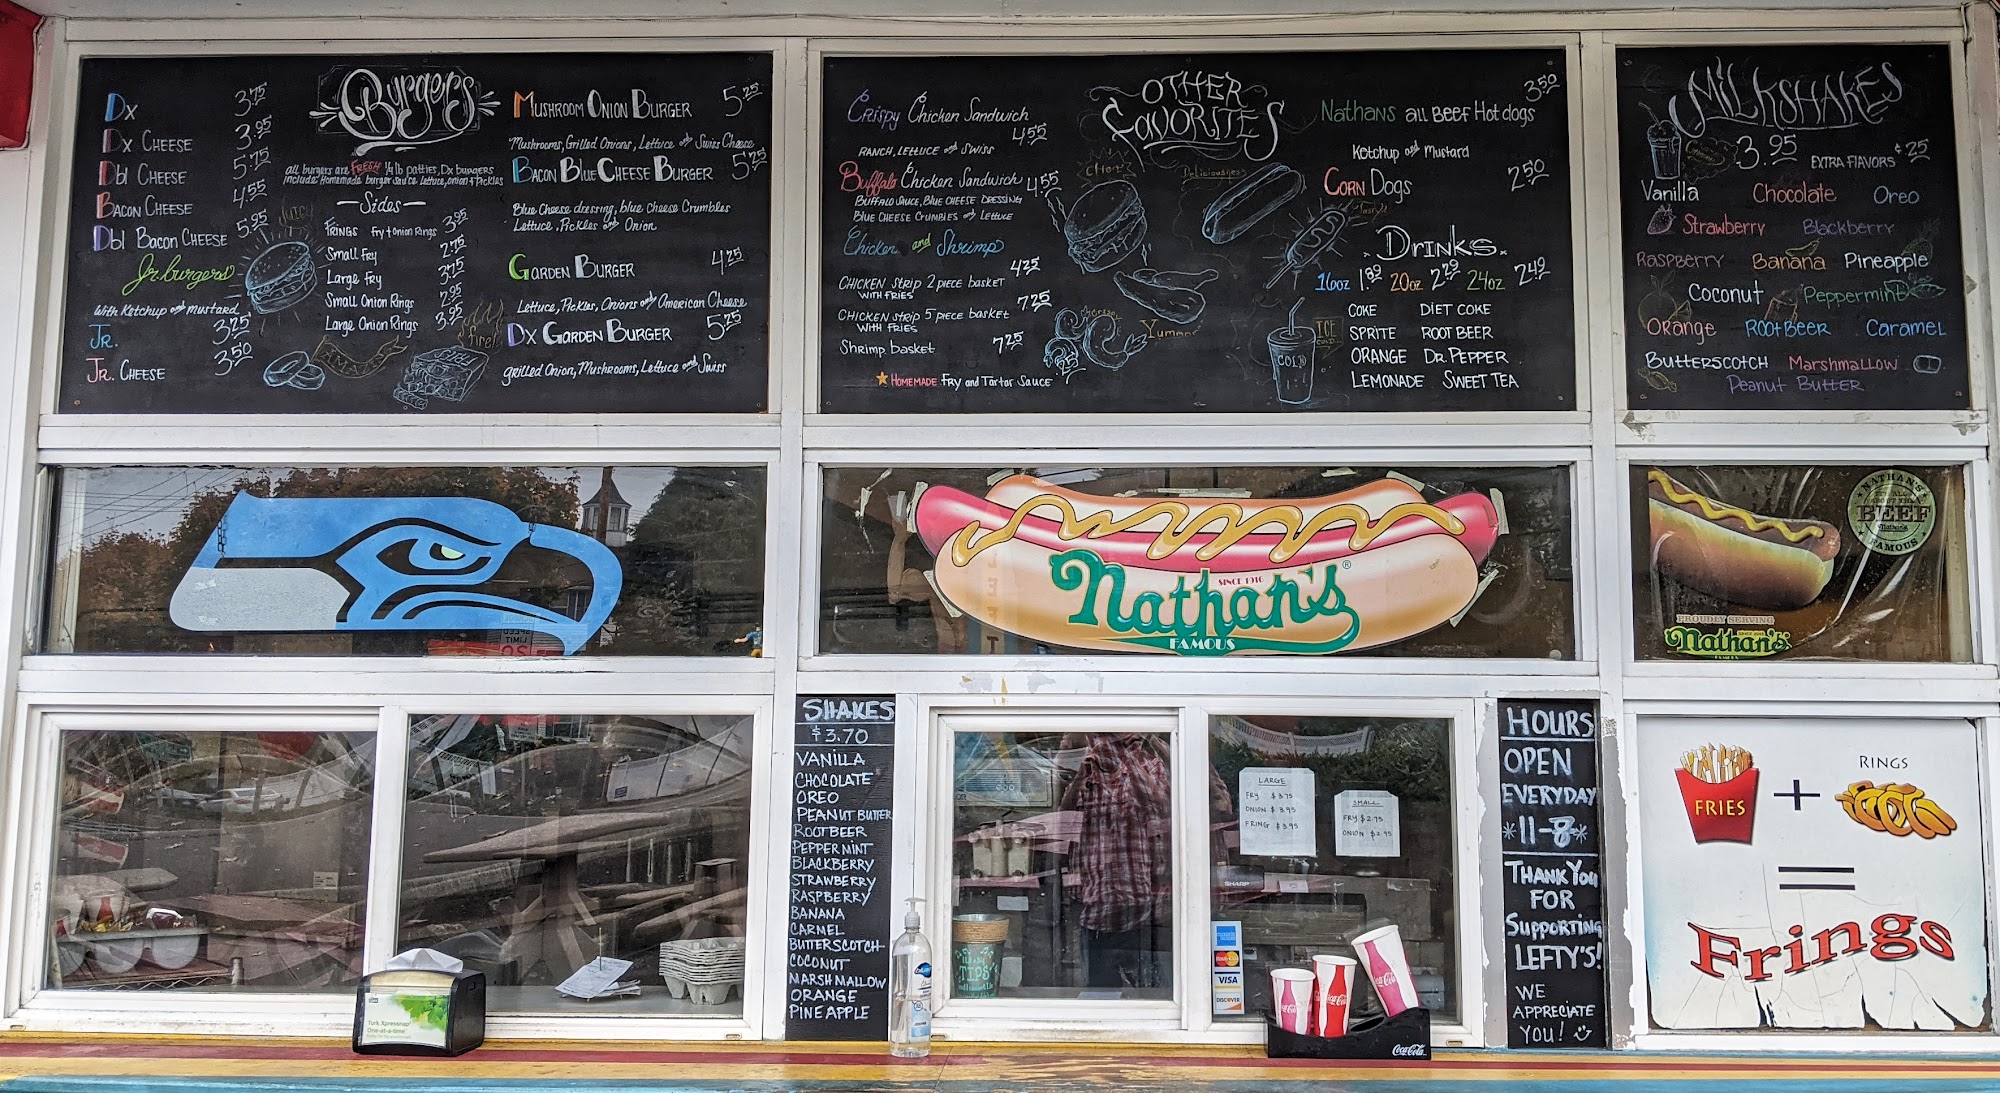 Burgers
Dx 3.75
Dx Cheese 3.95
Dbl Cheese 5.75
Bacon Cheese 4.55
Dbl Bacon Cheese 5.95
Jr. burgers
With Ketchup and mustard
Jr. 3.25
Jr. Cheese 3.50
all burgers are FRESH 1/4 lb patties, Dx burgers
include: Homemade burger sauce lettuce, onion & Pickles
Sides
Frings Fry & Onion Rings 3.95
Small Fry 2.75
Large Fry 3.75
Small Onion Rings 2.95
Large Onion Rings 3.95
JUICY
AMAZING
fire!
FRIES
Mushroom Onion Burger 5.25
Mushrooms, Grilled Onions, Lettuce and Swiss Cheese
Bacon Blue Cheese Burger 5.75
Blue Cheese dressing, blue Cheese Crumbles
Lettuce, Pickles and Onion
Garden Burger 4.25
Lettuce, Pickles, Onions and American Cheese
Dx Garden Burger 5.25
grilled Onion, Mushrooms, Lettuce and Swiss
OTHER
FAVORITES
Crispy Chicken Sandwich
4.55
RANCH, LETTUCE and SWISS
Buffalo Chicken Sandwich 4.55
BUFFALO SAUCE, BLUE CHEESE DRESSING
BLUE CHEESE CRUMBLES and LETTUCE
Chicken and Shrimp
CHICKEN STRIP 2 piece basket 4.25
WITH FRIES
CHICKEN STRIP 5 piece basket 7.25
WITH FRIES
Shrimp basket 7.25
HOMEMADE Fry and Tartar Sauce
Deliciousness
Yummm
Tasty!
Nathans all Beef Hot dogs 3.50
Ketchup and Mustard
Corn Dogs 2.50
Drinks
16oz 1.89 20oz 2.29 24oz 2.49
COKE DIET COKE
SPRITE ROOT BEER
ORANGE DR. PEPPER
LEMONADE SWEET TEA
ICE
COLD
COLD
MiLKSHAKES
3.95 EXTRA FLAVORS ¢25
Vanilla Chocolate Oreo
Strawberry Blackberry
Raspberry Banana Pineapple
Coconut Peppermint
Orange Root Beer Caramel
Butterscotch Marshmallow
Peanut Butter
SINCE 1916
Nathan's®
FAMOUS
NATHAN'S
BEEF
Nathan's
FAMOUS
PROUDLY SERVING
Nathan's
SPEED
LIMIT
SHAKES
$3.70
VANILLA
CHOCOLATE
OREO
PEANUT BUTTER
ROOTBEER
PEPPERMINT
BLACKBERRY
STRAWBERRY
RASPBERRY
BANANA
CARMEL
BUTTERSCOTCH
COCONUT
MARSHMALLOW
ORANGE
PINEAPPLE
LARGE
FRY $3.75
ONION $3.95
FRING $3.95
SMALL
FRY $2.75
ONION $2.95
SHARP
TIPS
MasterCard
VISA
DISCOVER
Coca-Cola
Coca-Cola
Coca-Cola
Coca-Cola
Tork Xpressnap®
One-at-a-time
HOURS
OPEN
EVERYDAY
*11-8*
THANK YOU
FOR
SUPPORTING
LEFTY'S!
WE
APPRECIATE
YOU!
FRIES
+
RINGS
=
Frings